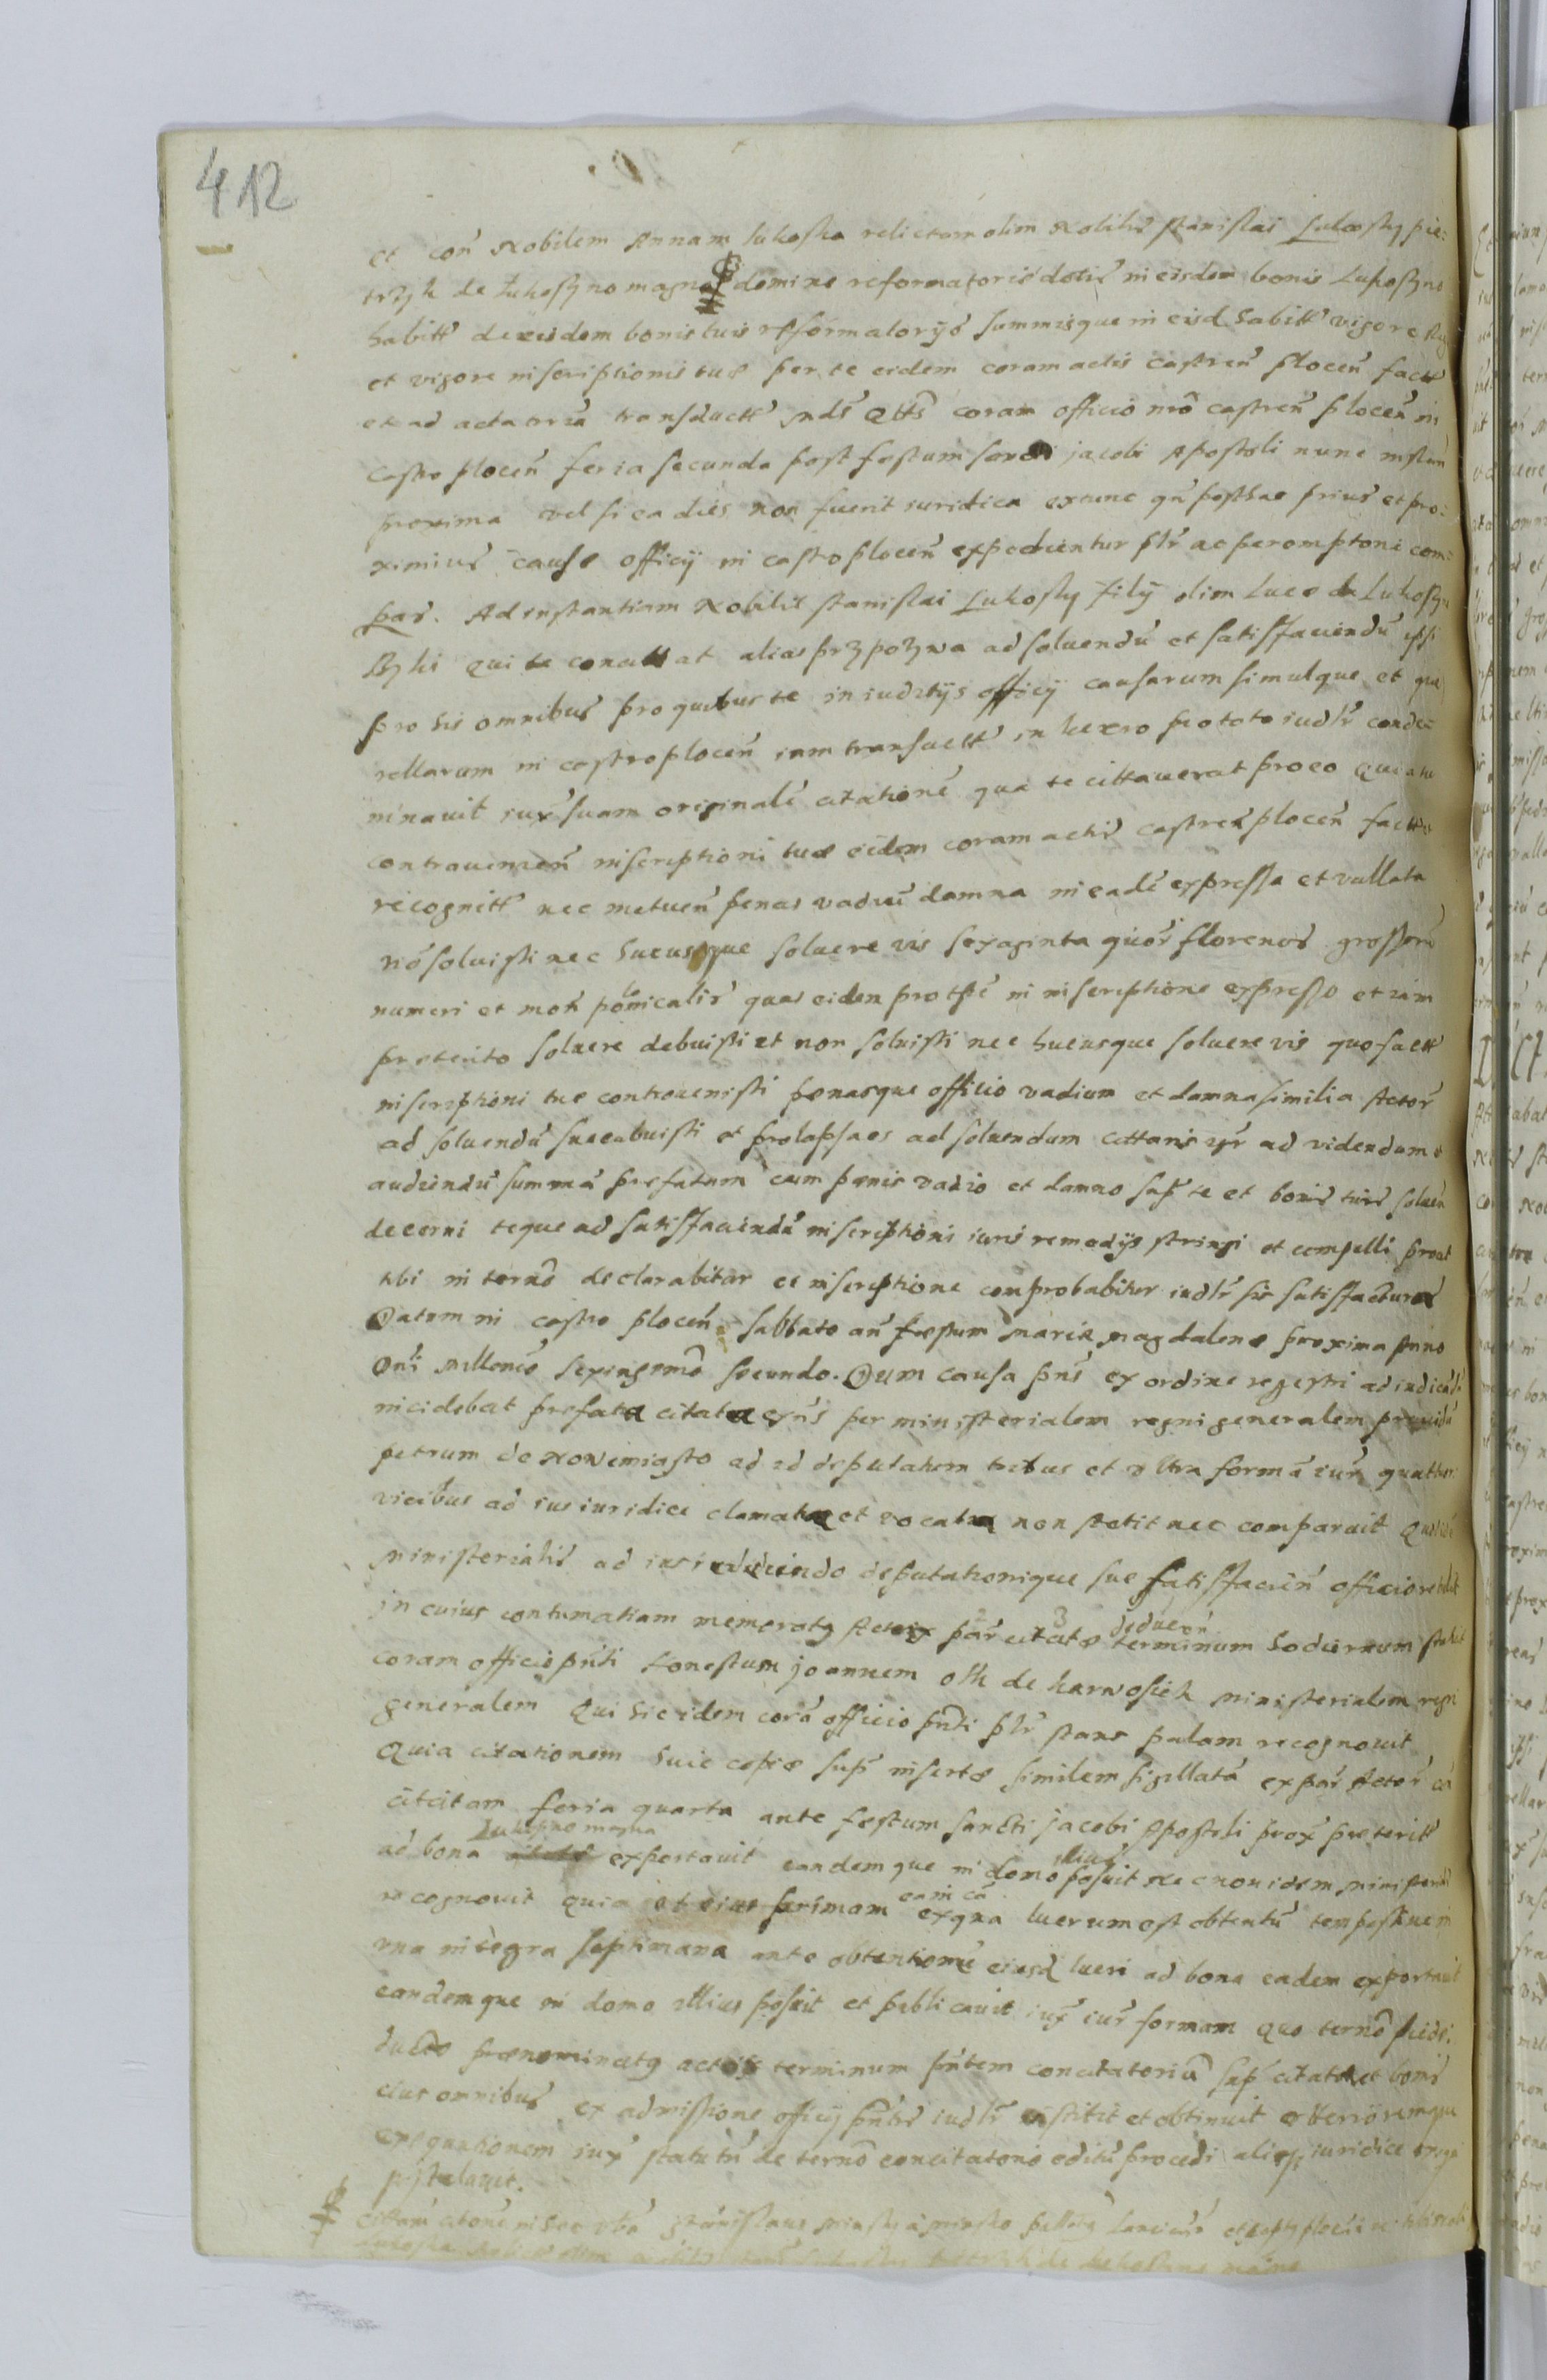 412
et con̄ Nobilem Annam lukoska relictam olim Nobilis Stanislai Lukosky pie:
trzyk de Lukoszyno magno domine reformatorie dotis in eisdem bonis Lukoszyno
habitt de eisdem bonis tuis reformatorys summisque in eisd habitt vigore
et vigore inscriptionis tue per te eidem coram actis castren̄ plocen̄ factt
et ad acta trȳa transductt coram officio nrō castren̄ plocen̄ in
Castro plocen̄ feria secunda post festum sancti jacobi Apostoli nunc instan̄
proxima vel si ea dies non fuerit iuridica extunc posthac prius et pro:
ximius cause officij in castro plocen̄ expedientur plr̄ ac peremptorie com:
par̄. Ad instantiam Nobilis Stanislai Lukosky filij olim luce de Lukoszyn
qui te concittat alias przypozywa ad soluendū et satisfaciendū ipsi
pro his omnibus pro quibus te in iuditijs officij causarum simulque et que
rellarum in castro plocen̄ iam transactt in lucro peototo iudlr̄ conde
minauit iux̄ suam originalē citationē qua te cittauerat pro eo Quia tu
contrauenien̄ inscriptioni tue eidem coram actis castren̄ plocen̄ factt
recognitt nec metuen̄ penas vadiū damna in eadē expressa et vallata
nō soluisti nec hucusque soluere vis sexaginta quor̄ florenos grossorū
numeri et mon̄ polonicalis quas eidem pro tpē in inscriptione expresso et iam
preterito soluere debuisti et non soluisti nec hucusque soluere vis quo factt
inscriptioni tue contrauenisti penasque officio vadium et damna similia Actori
ad soluendū succubuisti et prolapsa es ad soluendum cittaris igr̄ ad videndum et
audiendū summā prefatam cum penis vadio et damno sup̄ te et bonis tuis soluen̄
decerni teque ad satisfaciendū inscriptioni iuris remedijs stringi et compelli prout
tibi in ternō declarabitur et inscriptione comprobabitur iudlr̄ sis satisfactura
Datum in castro plocen̄ sabbato an̄ festum Marie Magdalene proxima Anno
Dnī Millenō sexingenmō secundo. Dum causa pn̄s ex ordine regestri ad iudicādū
incidebat prefata citata per ministerialem regni generalem prouidū
petrum de Nowemiasto ad id deputatum tribus et vltra formā iuris quattuor
vicibus ad ius iuridice clamata et vocata non stetit nec comparuit
Ministerialis ad ius deputationique sue satisfacien̄ officio retulit
in cuius contumatiam memoratg Actor par̄ citate deducen̄ terminum hodiernum statuit
coram officio pn̄ti Honestum joannem olk de karwosiek Ministerialem regni
generalem Qui hic idem corā officio pn̄ti plr̄ stans palam recognouit
Quia citationem huic copie sup̄ inserte similem sigillatā ex par̄ Actor̄ cā
citcitam feria quarta ante festum Sancti jacobi Apostoli prox̄ preteritt
ad bona Lukoszno magna exportauit eandemque in domo illius posuit Nec non idem ministerial
recognouit quia primam eam cā ex qua lucrum est obtentū tempestiue in
vna integra septimana ante obtentionē eiusd lucri ad bona eadem exportauit
eandemque in domo illius posuit et publicauit iux̄ iur̄ formam Quo ternō sic de:
ducto prenominatg actor terminum pn̄tem concitatoriū sup̄ citata et bonis
eius omnibus ex admissione officij pn̄tis iudlr̄ institit et obtinuit vlterioremque
exequutionem iux̄ statutū de ternō concitatorio editū procedi iuridice
postulauit.
Stanislaus